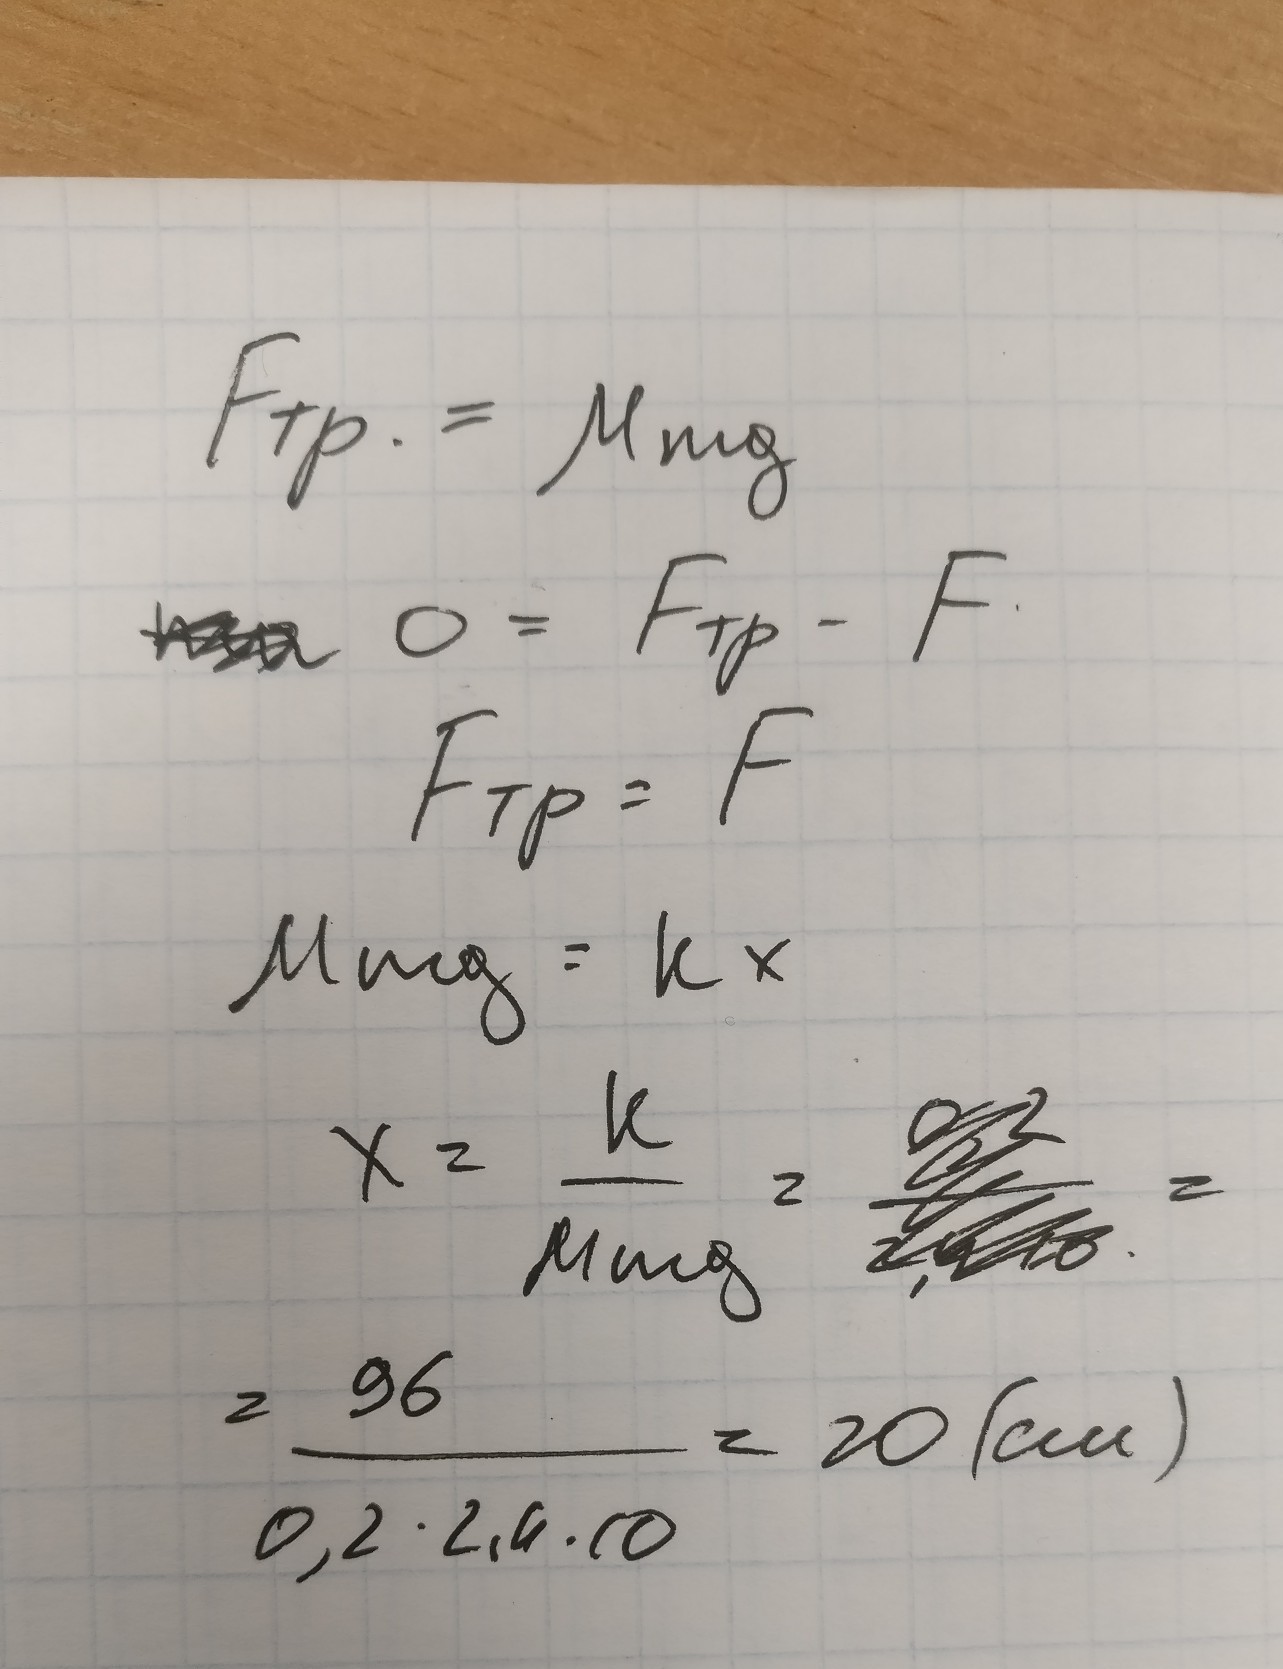 Fтр. = μmg
0 = Fтр - F
Fтр = F
μmg = kx
x = k/μmg = =
= 96/0,2·2,4·10 = 20 (см)